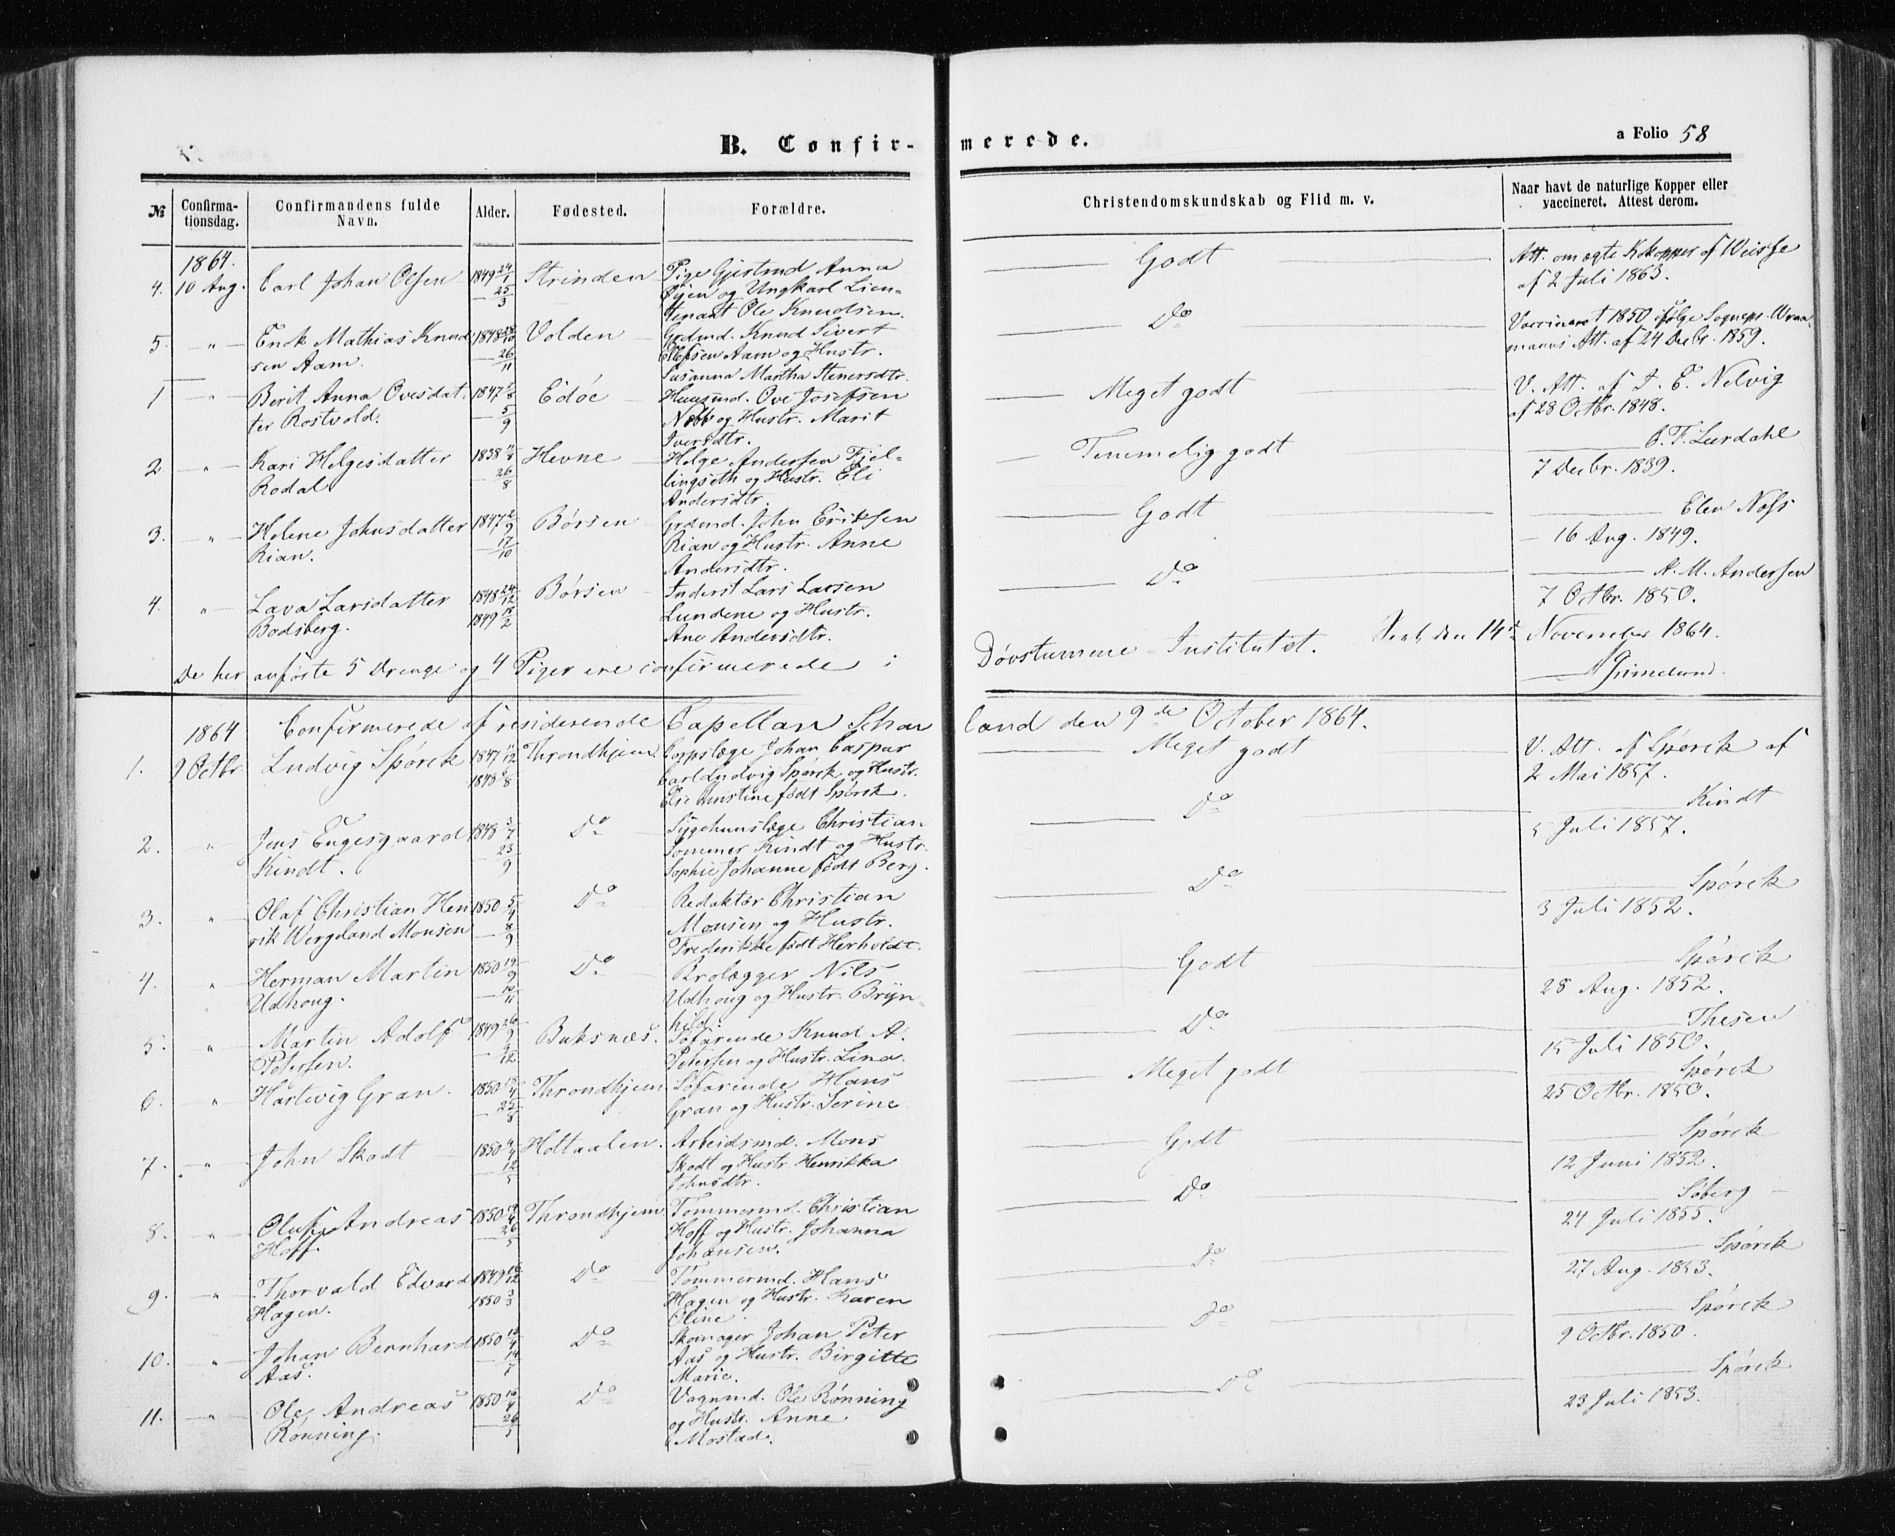 B. Confir- merede. a Folio 58
№ Confirma-tionsdag. Confirmandens fulde Navn. Alder. Fødested. Forældre. Christendomskundskab og Flid m. v. Naar havt de naturlige Kopper eller vaccineret. Attest derom.
1864.
4. 10 Aug. Carl Johan Olsen 1849 24/1 Strinden Pige Gjertrud Anna Godt Att. om ægte Kokopper af Weisse
25/3 Øyen og Ungkarl Lieu- af 2 Juli 1863.
tenant Ole Knudsen.
5. " Enok Mathias Knud- 1848 Volden Grdmd. Knud Sivert Do Vaccineret 1850 ifølge Sognepr.
sen Aam. 26/11 Olefsen Aam og Hustr. Att. af 24 Decbr. 1859.
Susanna Martha Stenersdtr.
1 " Berit Anna Ovesdat- 1847 Edøe Huusmd. Ove Josefsen Meget godt V. Att. af T. E. Nelvig
ter Rostvold. 5/9 og Hustr. Marit af 28 Octbr. 1848.
Iversdtr.
2 " Kari Helgesdatter 1838 Hevne Helge Andersen Fjel- Temmelig godt O. T. Leerdahl
Rodal 26/8 lingseth og Hustr. Eli 7 Decbr. 1839.
Andersdtr.
3. " Helene Johnsdatter 1847 Børsen Grdmd. John Eriksen Godt Elev Noss
Rian. 17/10 Rian og Hustr. Anne 16 Aug. 1849.
Andersdtr.
4. " Lava Larsdatter 1848 24/12 Børsen Inderst Lars Larsen Do A. M. Andersen
Bodsberg. 1849 18/2 Lundene og Hustr. 7 Octbr. 1850.
Ane Andersdtr.
De her anførte 5 Drenge og 4 Piger ere confirmerede i Døvstumme-Institutet. den 14de November 1864.
Grimelund.
1864 Confirmerede af residerende Capellan Schar land den 9de October 1864.
1. 9 Octbr Ludvig Spørck 1847 11/12 Throndhjem Corpslæge Johan Caspar Meget godt V. Att. af Spørck af
1848 6/8 Carl Ludvig Spørck og Hustr. 2 Mai 1857.
Christine født Spørck.
2. " Jens Engesgaard 1848 3/7 Do Sygehuuslæge Christian Do Kindt
Kindt. 23/9 Sommer Kindt og Hustr. 5 Juli 1857.
Sophie Johanne født Berg.
3. " Olaf Christian Hen 1850 5/4 Do Redaktør Christian Do Spørck
rik Wergeland Monsen 8/9 Monsen og Hustr. 3 Juli 1852.
Frederikke født Herholdt.
4. " Herman Martin 1850 19/9 Do Brolægger Nils Godt Spørck
Udhoug. 10/11 Udhoug og Hustr. Bryn- 28 Aug. 1852.
hild.
5. " Martin Adolf 1849 26/9 Buksnæs. Søfarende Knud A. Do Thesen
Petersen. 9/12 Petersen og Hustr. Lina. 15 Juli 1850.
6. " Hartvig Gran. 1850 Throndhjem Søfarende Hans Meget godt Spørck
25/8 Gran og Hustr. Serine 25 Octbr. 1850.
7. " John Skodt 1850 4/4 Holtaalen. Arbeidsmd. Mons Godt Spørck
12/5 Skodt og Hustr. Henrikka 12 Juni 1852.
Johnsdtr.
8. " Oluf Andreas 1850 19/4 Throndhjem Tømmermd. Christian Do Søberg
Hoff. 26/5 Hoff og Hustr. Johanna 24 Juli 1855.
Johansen.
9. " Thorvald Edvard 1849 16/12 Do Tømmermd. Hans Do Spørck
Hagen. 1850 3/3 Hagen og Hustr. Karen 27 Aug. 1853.
Oline.
10. " Johan Bernhard 1850 18/4 Do Skomager Johan Peter Do Spørck
Aas. 14/7 Aas og Hustr. Birgitte 9 Octbr. 1850.
Marie.
11. " Ole Andreas 1850 16/4 Do Vognmd. Ole Rønning Do Spørck
Rønning. 26/5 og Hustr. Anne 23 Juli 1853.
Mostade.